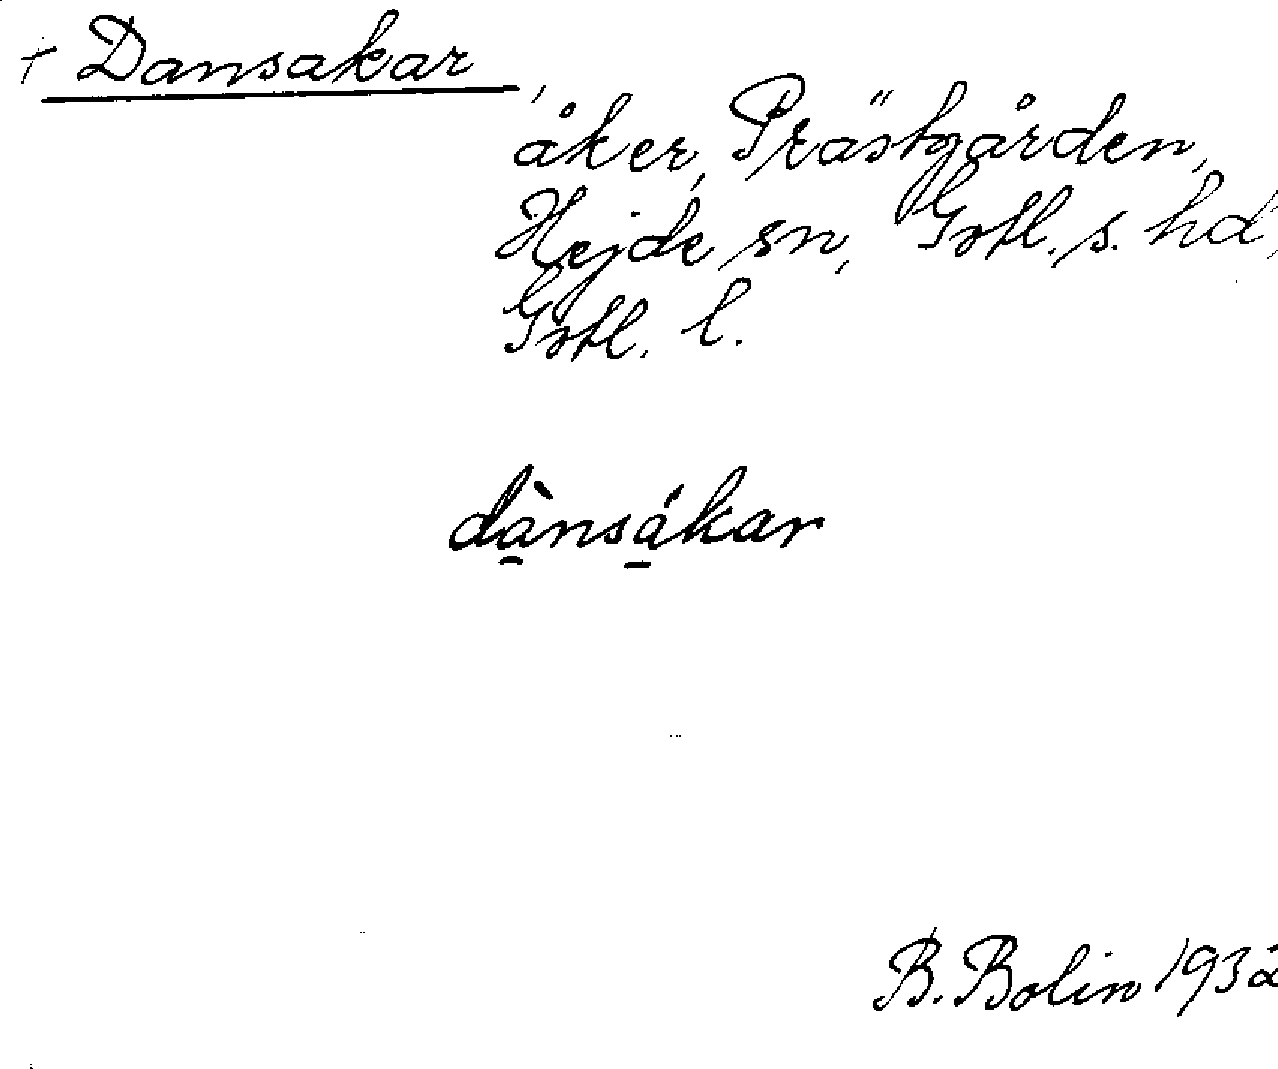 † Dansakar,
åker, Prästgården,
Hejde sn, Gotl. s. hd,
Gotl. l.
dànsákar
B. Bolin 1932